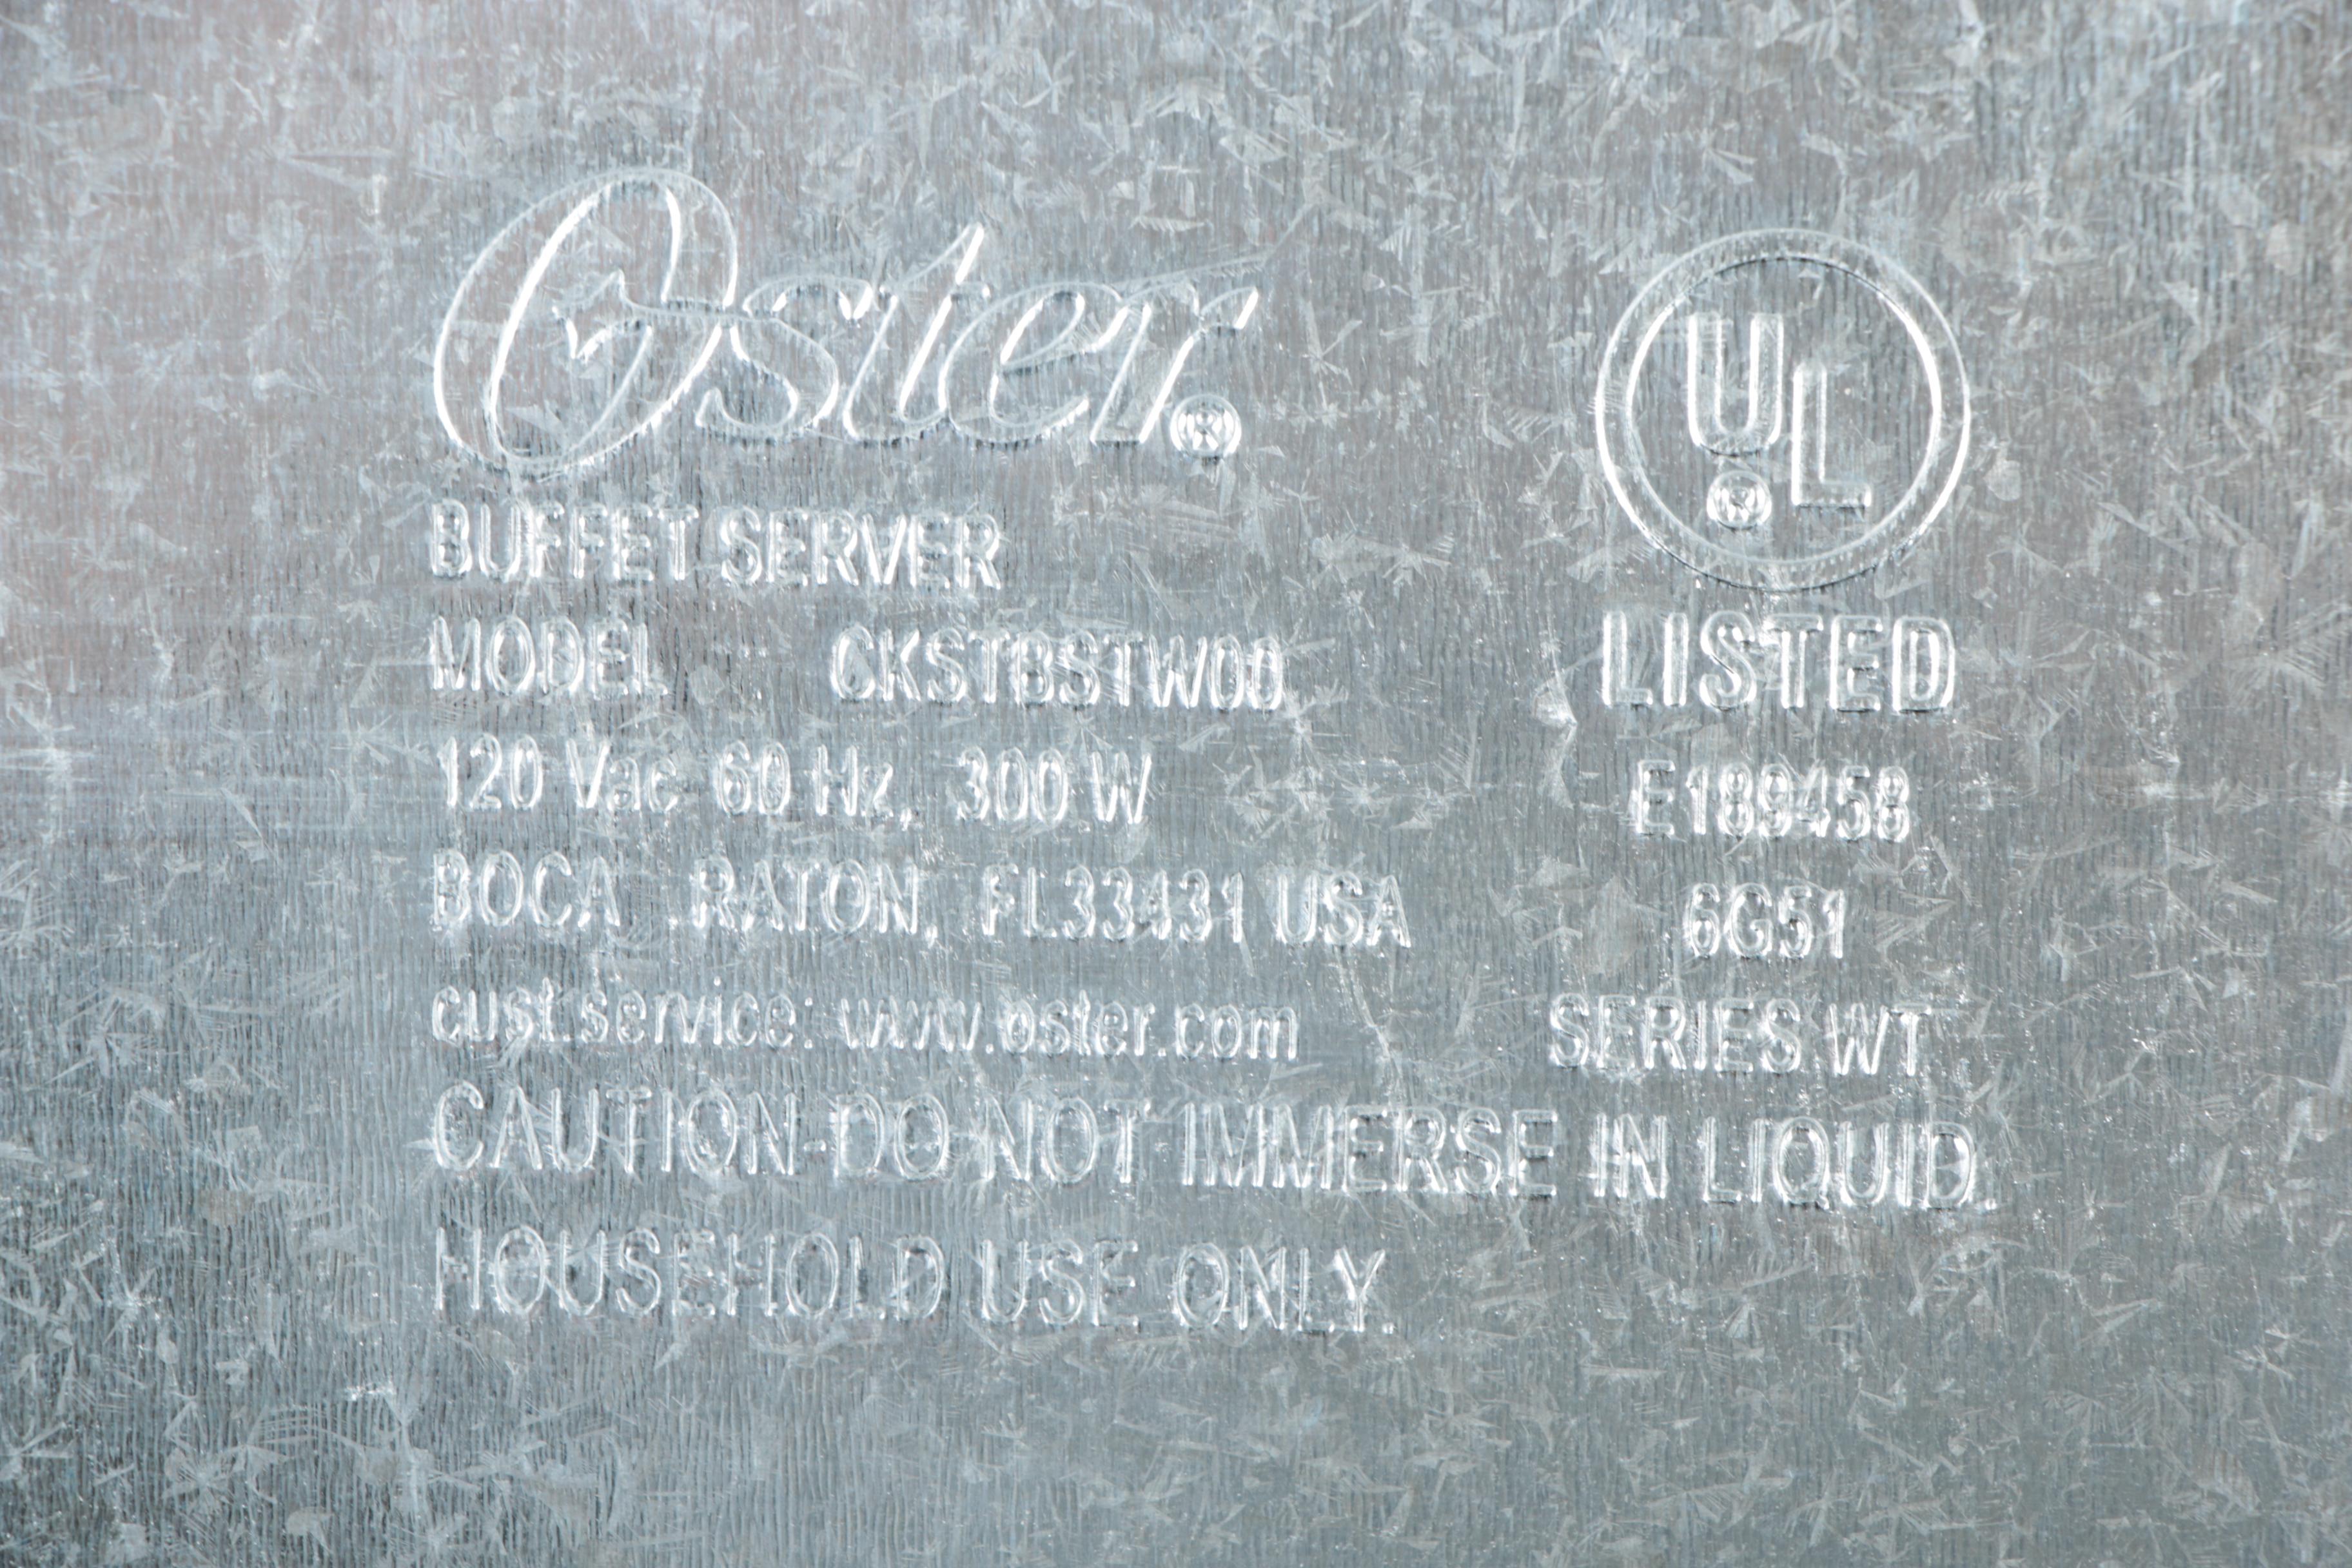 Oster®
BUFFET SERVER
MODEL CKSTBSTW00
120 Vac 60 Hz, 300 W
BOCA RATON, FL33431 USA
cust.service: www.oster.com
UL®
LISTED
E189458
6G51
SERIES WT
CAUTION-DO NOT IMMERSE IN LIQUID.
HOUSEHOLD USE ONLY.